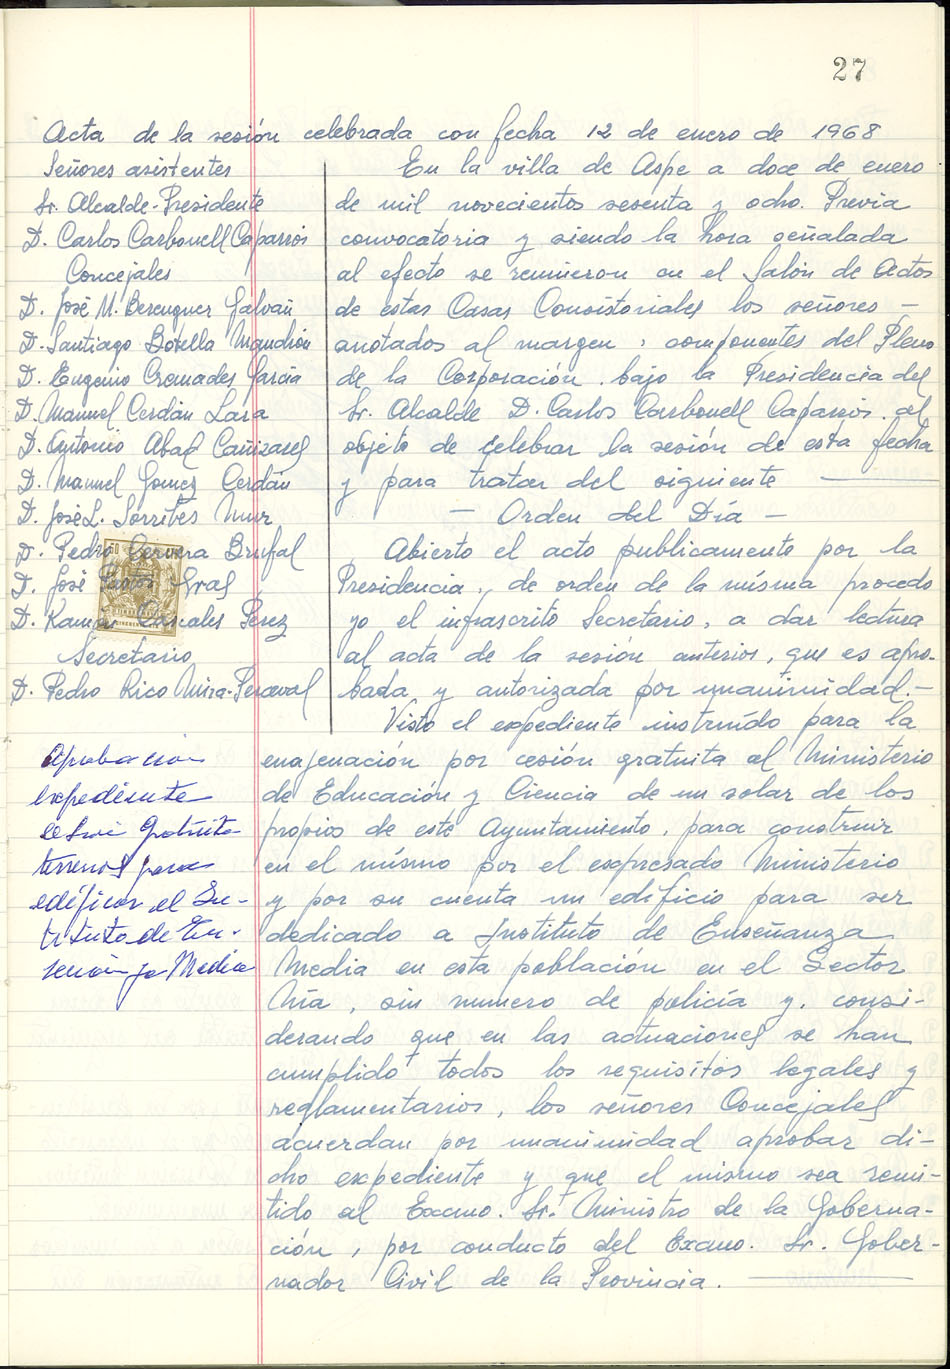 27
Acta de la sesión celebrada con fecha 12 de enero de 1968
Señores asistentes
Sr. Alcalde-Presidente
D. Carlos Carbonell Caparrós
Concejales
D. José M. Berenguer Galvañ
D. Santiago Botella Mandrión
D. Eugenio Cremades García
D. Manuel Cerdán Lara
D. Antonio Abad Cañizares
D. Manuel Gomez Cerdán
D. José L. Sorribes Mur
D. Pedro Cervera Brufal
D. José Gras
D. Ramón Corrales Pérez
Secretario
D. Pedro Rico Mira-Perceval
En la villa de Aspe a doce de enero
de mil novecientos sesenta y ocho. Previa
convocatoria y siendo la hora señalada
al efecto se reunieron en el Salón de Actos
de estas Casas Consistoriales los señores —
anotados al margen, componentes del Pleno
de la Corporación, bajo la Presidencia del
Sr. Alcalde D. Carlos Carbonell Caparrós, al
objeto de celebrar la sesión de esta fecha
y para tratar del siguiente —
— Orden del Día —
Abierto el acto publicamente por la
Presidencia, de orden de la misma procedo
yo el infrascrito Secretario, a dar lectura
al acta de la sesión anterior, que es apro-
bada y autorizada por unanimidad.—
Visto el expediente instruído para la
enajenación por cesión gratuita al Ministerio
de Educación y Ciencia de un solar de los
propios de este Ayuntamiento, para construir
en el mismo por el expresado Ministerio
y por su cuenta un edificio para ser
dedicado a Instituto de Enseñanza
Media en esta población en el Sector
Nía, sin numero de policía y, consi-
derando que en las actuaciones se han
cumplido todos los requisitos legales y
reglamentarios, los señores Concejales
acuerdan por unanimidad aprobar di-
cho expediente y que el mismo sea remi-
tido al Excmo. Sr. Ministro de la Goberna-
ción, por conducto del Excmo. Sr. Gober-
nador Civil de la Provincia. —
Aprobación
expediente
cesión gratuita
terrenos para
edificar el Ins-
tituto de En-
señanza Media